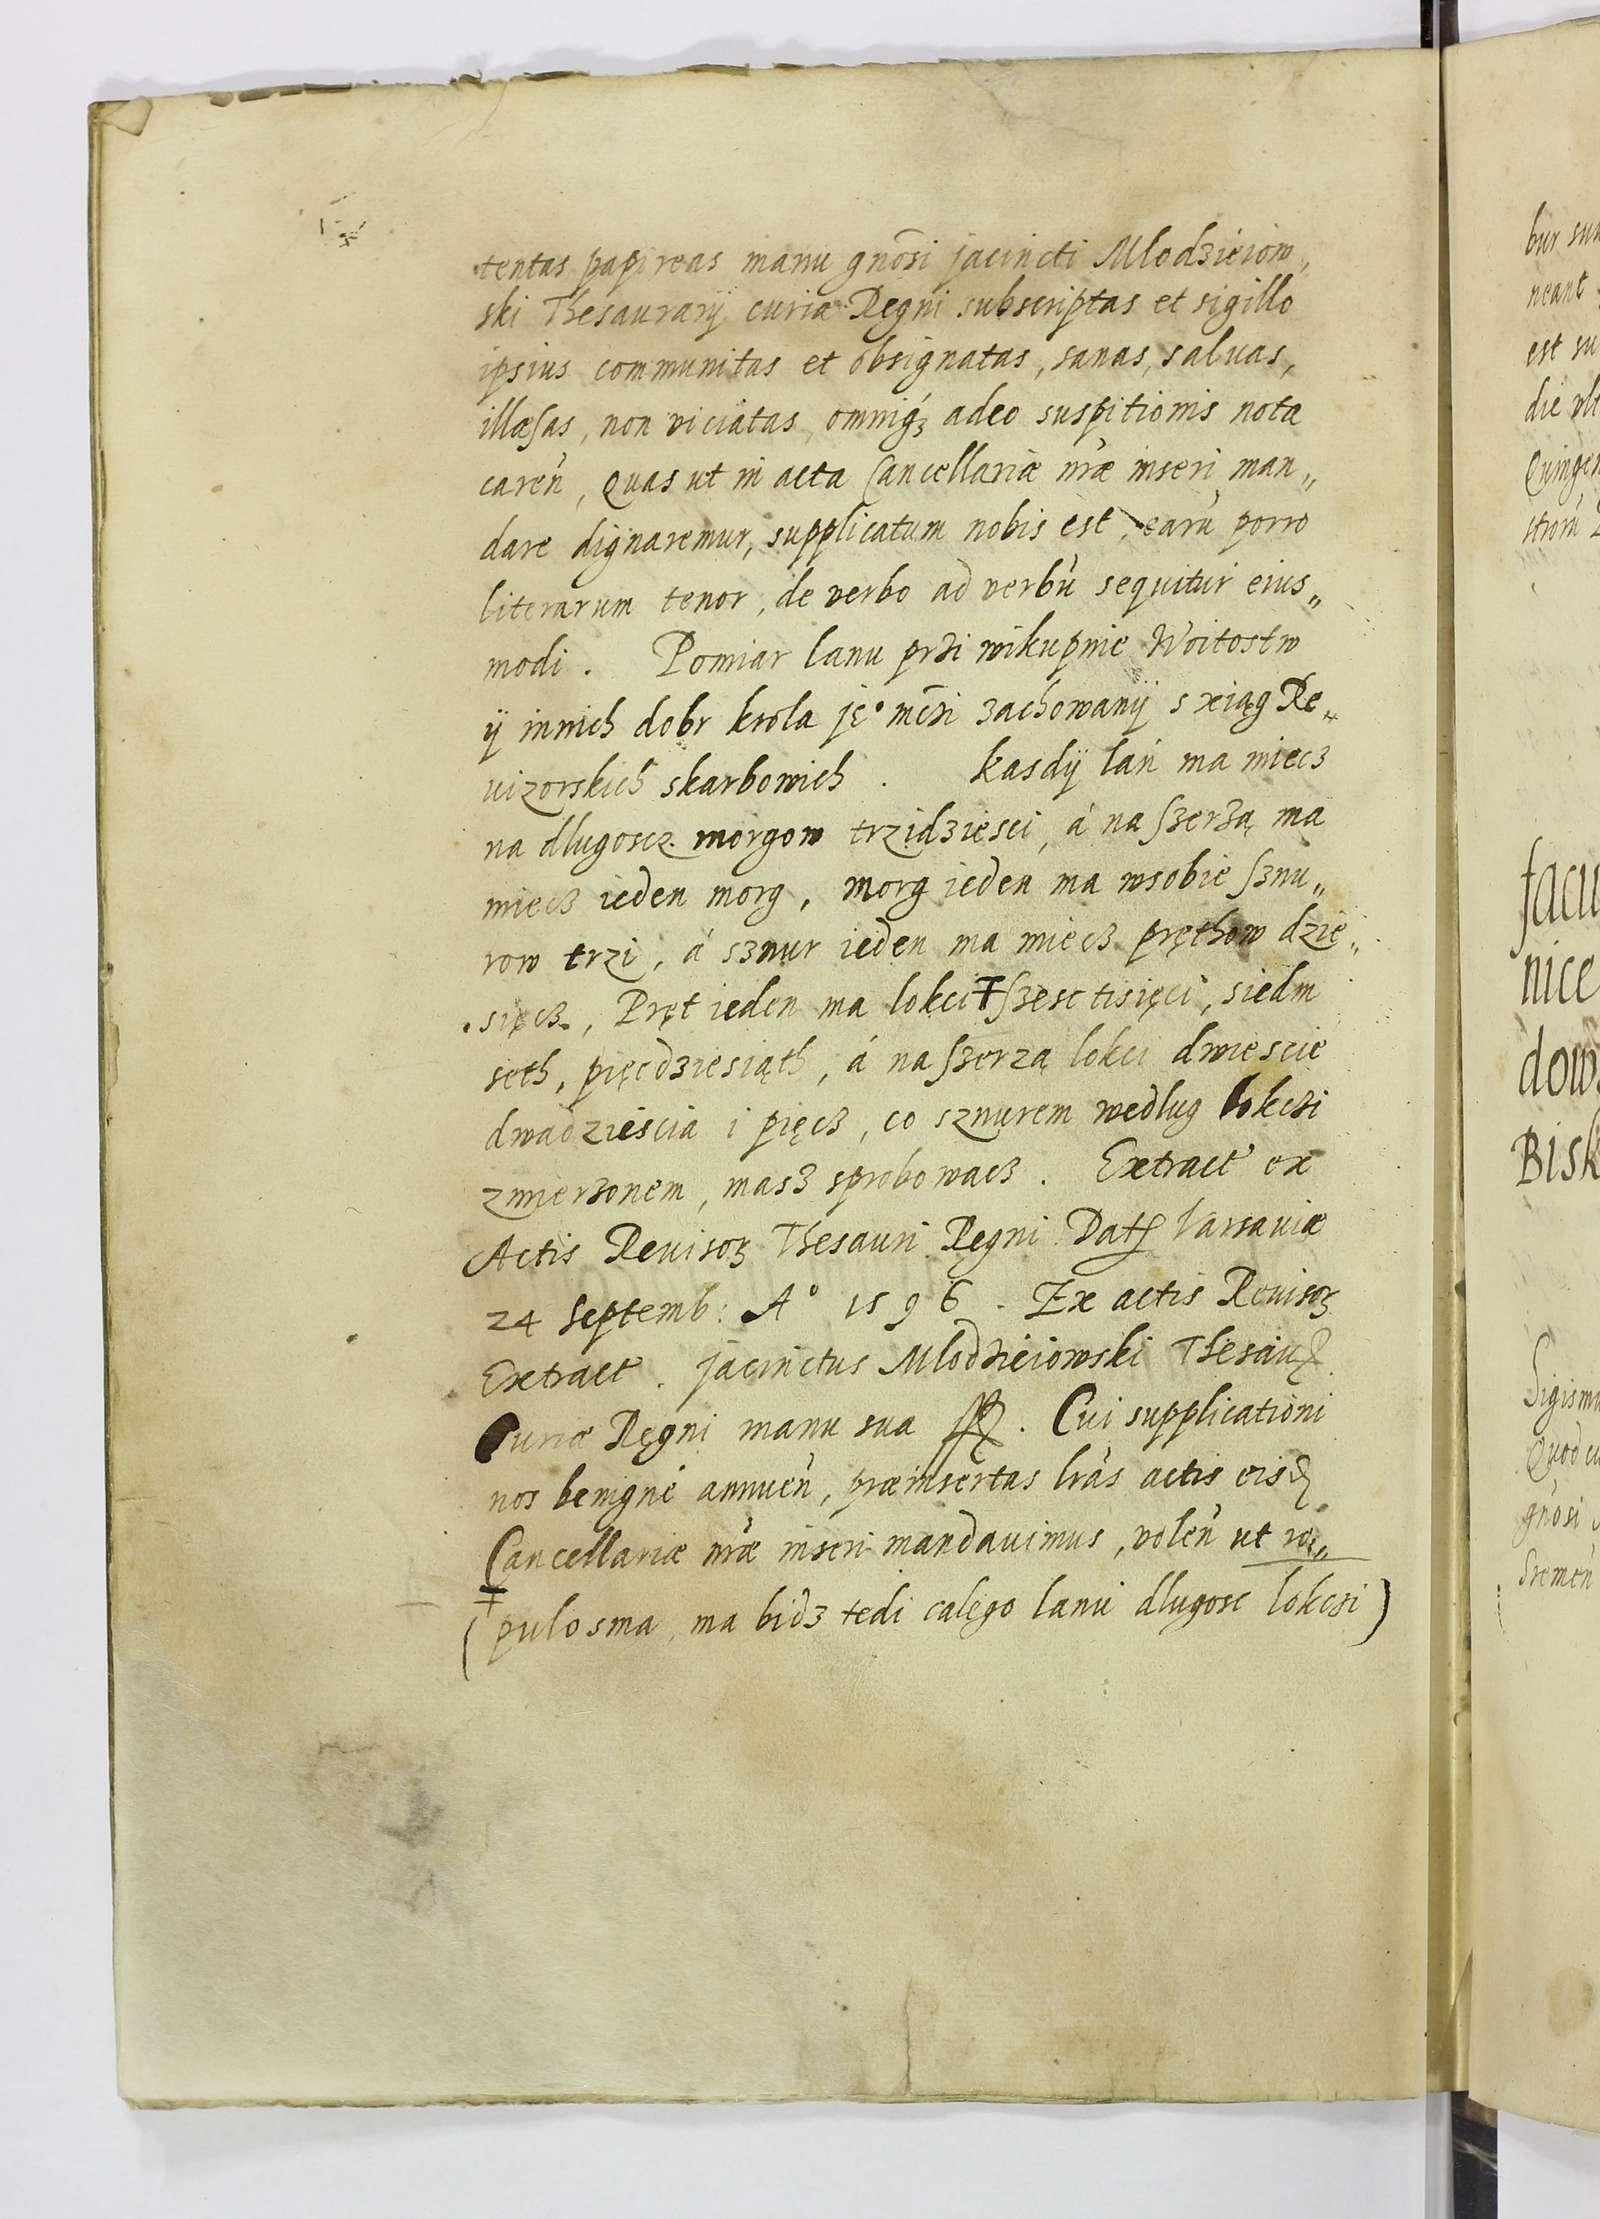 tentas papireas manu gnõsi jacincti Mlodzieiow„
ski Thesaurarÿ curiæ Regni subscriptas et sigillo
ipsius communitas et obsignatas, sanas, saluas,
illæsas, non viciatas, omniq́ꝫ adeo suspitionis nota
careǹ, quas ut in acta Cancellariæ nr̃æ inseri man„
dare dignaremur, supplicatum nobis est, earù porro
literarum tenor, de verbo ad verbù sequitur eius„
modi. Pomiar lanu przi wikupnie Woitostw
ÿ innich dobr krola je° mc̃zi zachowanÿ s xiąg Re„
uizorskich skarbowich. kasdÿ lan ma miecz
na dlugoscz morgow trzidziesci, á na szerzą ma
miecz ieden morg, morg ieden ma wsobie sznu„
row trzi, á sznur ieden ma miecz pręthow dzie„
sięcz, Pręt ieden ma lokci ‡ szesc tisięci, siedm
seth, pięcdziesiąth, á na szerzą lokci dwiescie
dwadziescia i pięcz, co sznurem wedlug lokczi
zmierzonem, masz sprobowacz. Extract ex
Actis Reuisoꝝ Thesauri Regni Datꝭ Varsauiæ
24 Septemb: A° 1596. Ex actis Reuisoꝝ
Extract. jacinctus Mlodzieiowski Thesauꝝ
Curiæ Regni manu sua ſſꝭ. Cui supplicationi
nos benigne annueǹ, præinsertas lr̃as actis eisd
Cancellariæ nr̃æ inseri mandauimus, voleǹ ut ro„
‡
(pulosma, ma bidz tedi calego lanu dlugosc lokczi)
bur sun
neant
est su
die vlt
Quingen
facu
nice
dow
Bisk
Sigismu
Quod cu
gnosi